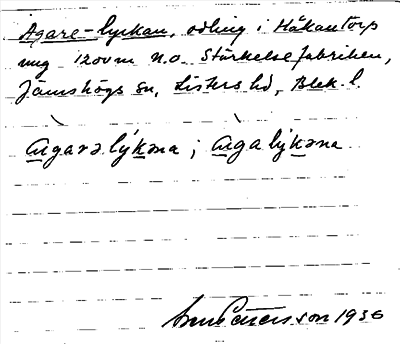 Agare-lyckan, odling i Håkantorp
ung 1200 m n.o. Stärkelsefabriken,
Jämshögs sn, Listers hd, Blek. l.
aigarə lýkəna ; aiga lýkəna
Petersson 1936